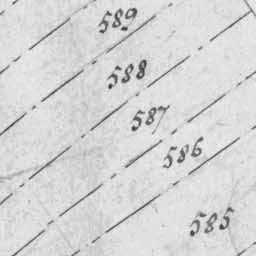 589
588
587
586
585